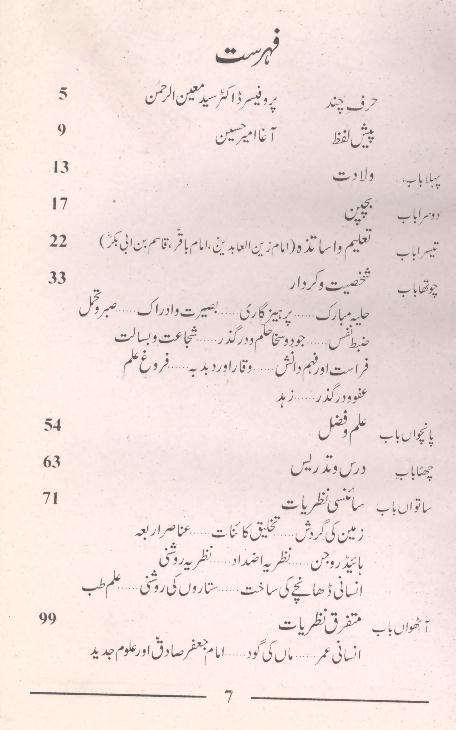 فہرست
حرف چند پروفیسر ڈاکٹر سید معین الرحمٰن 5
پیش لفظ آغا امیر حسین 9
پہلا باب ولادت 13
دوسرا باب بچپن 17
تیسرا باب تعلیم و اساتذہ (امام زین العابدینؑ، امام باقرؑ، قاسم بن ابی بکرؓ) 22
چوتھا باب شخصیت و کردار 33
حلیہ مبارک ...... پرہیز گاری ...... بصیرت و ادراک ...... صبر و تحمل
ضبط نفس ...... جود و سخا حلم و درگذر ...... شجاعت و بسالت
فراست اور فہم و دانش ...... وقار اور دبدبہ ...... فروغ علم
عفو و درگذر ...... زہد
پانچواں باب علم و فضل 54
چھٹا باب درس و تدریس 63
ساتواں باب سائنسی نظریات 71
زمین کی گردش ...... تخلیق کائنات ...... عناصر اربعہ
ہائیڈروجن ...... نظریہ اضداد ...... نظریہ روشنی
انسانی ڈھانچے کی ساخت ...... ستاروں کی روشنی ...... علم طب
آٹھواں باب متفرق نظریات 99
انسانی عمر ...... ماں کی گود ...... امام جعفر صادقؑ اور علوم جدید
7